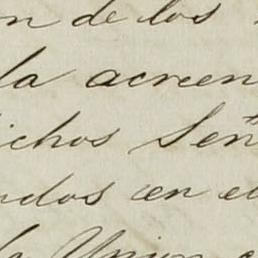 n de los
la acreen
ichos Señ
ndos en e
la Union